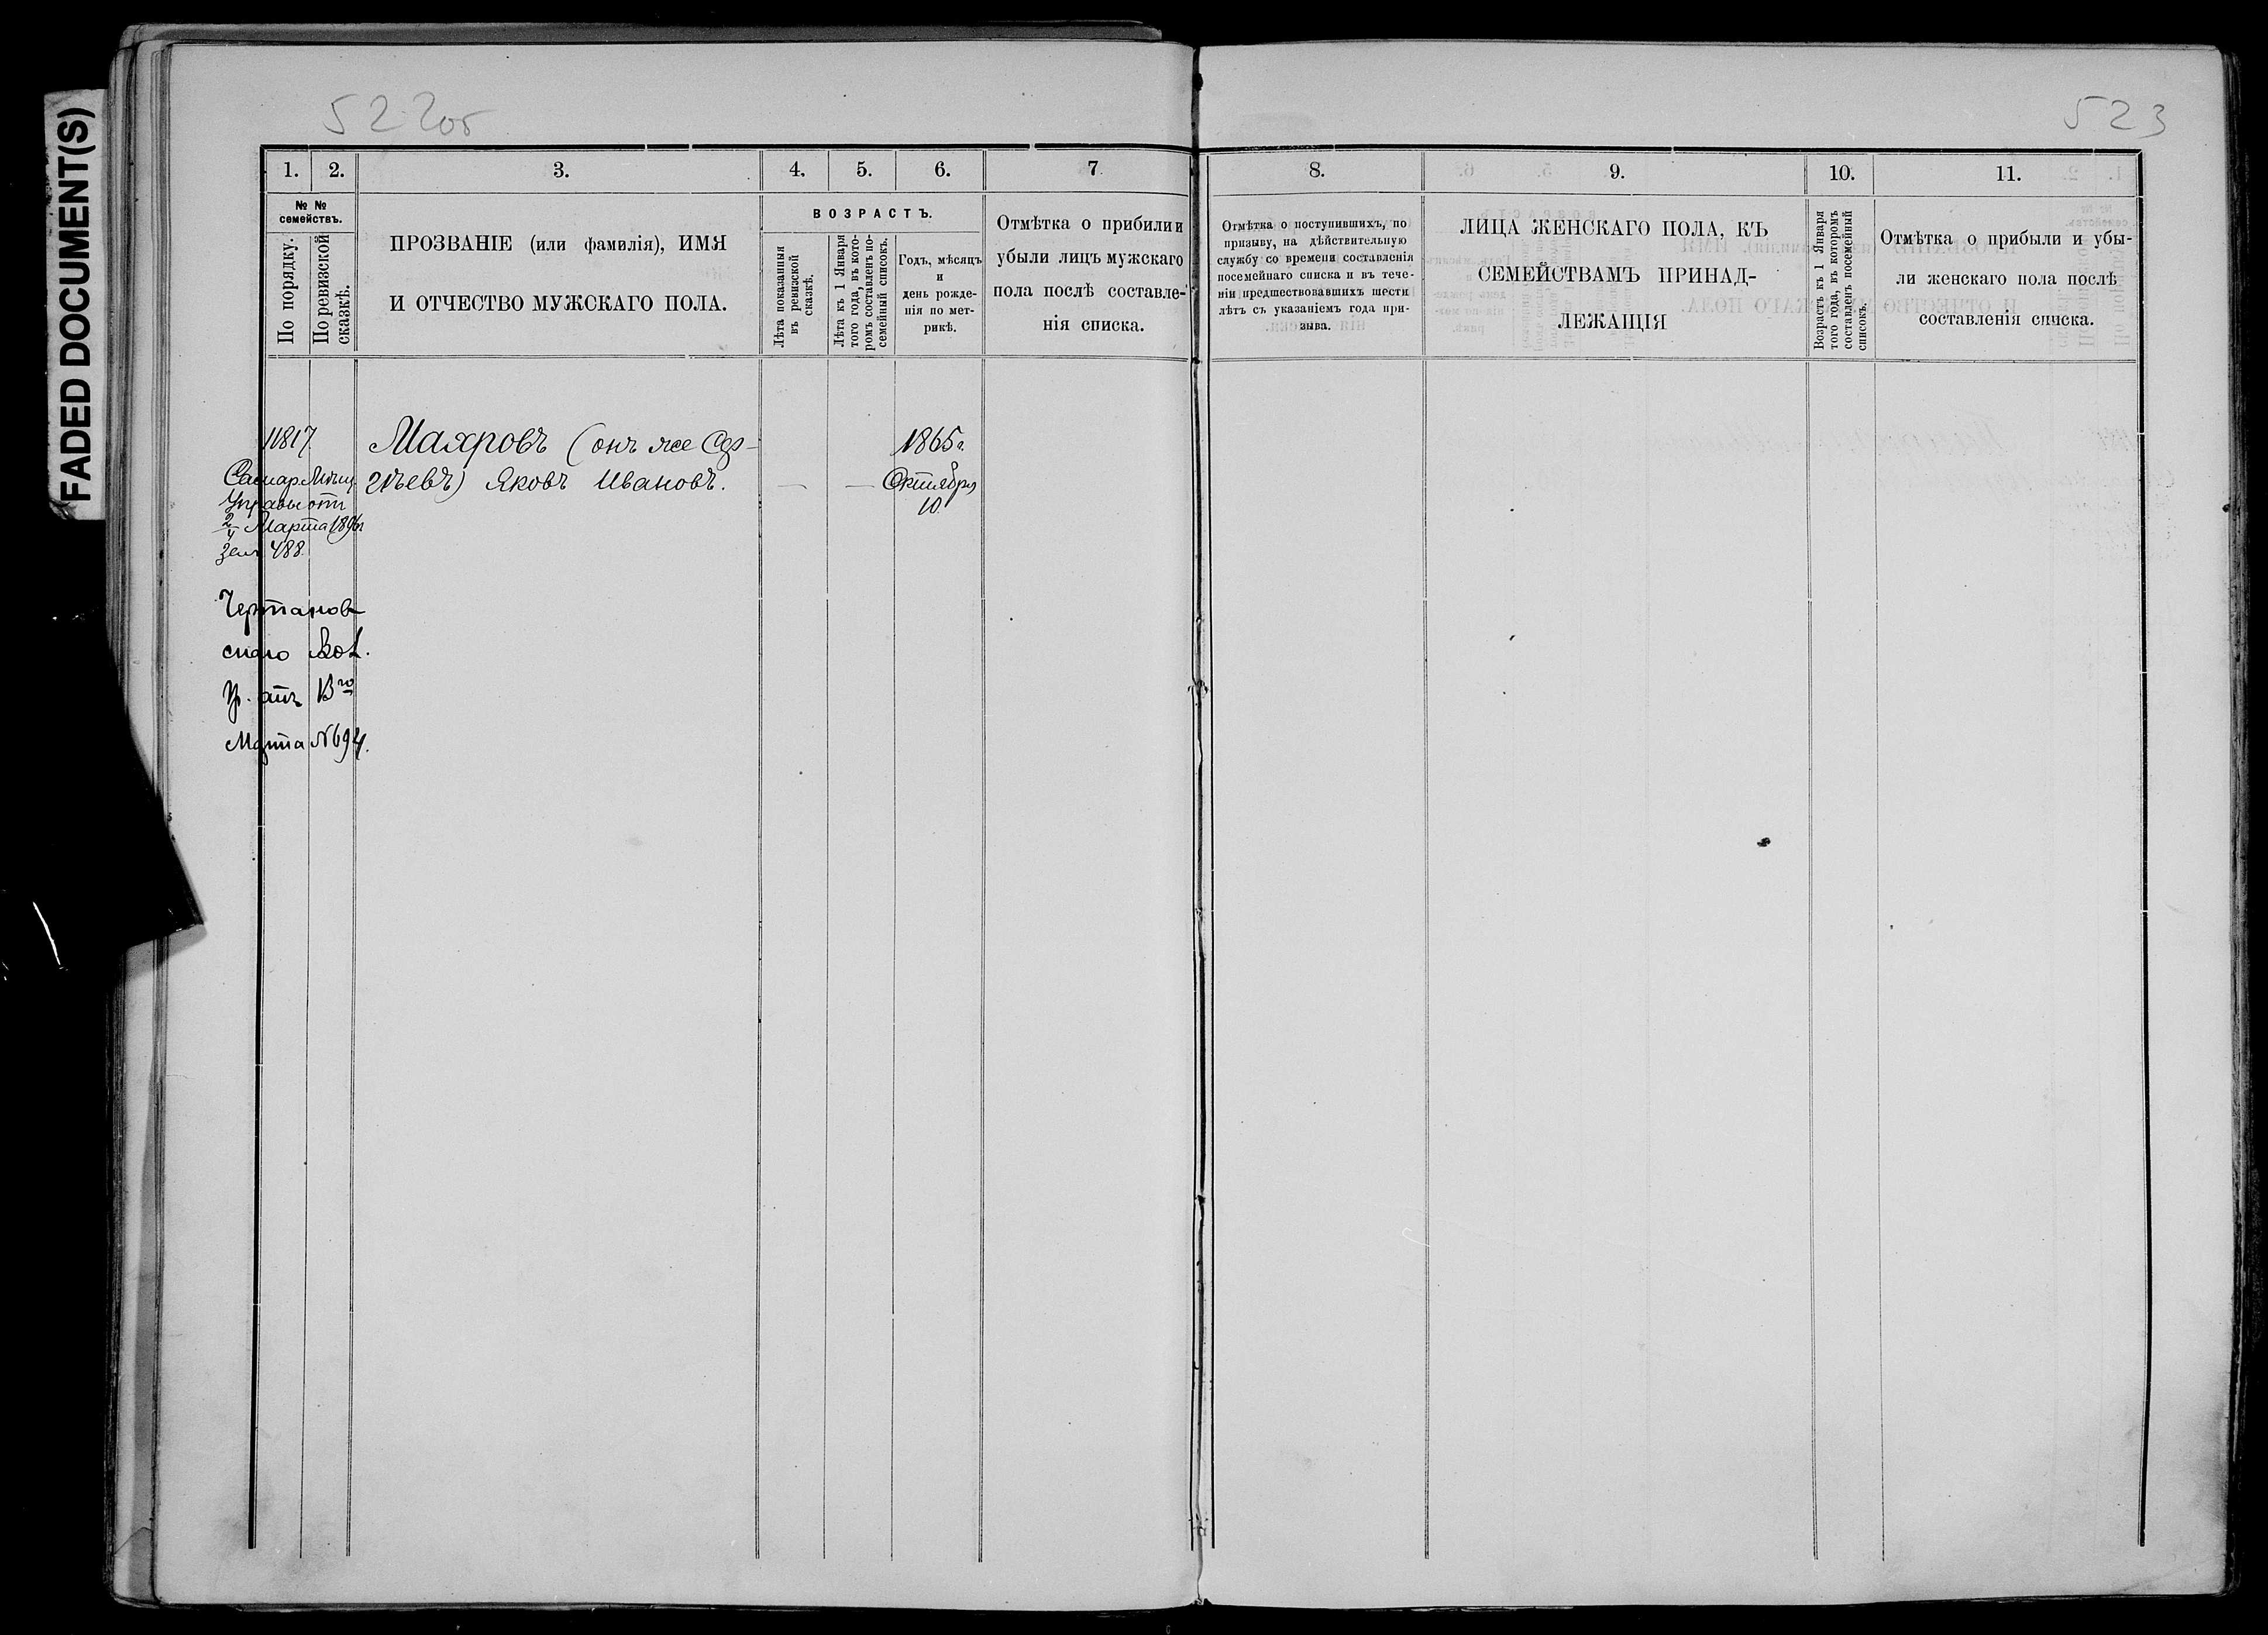 FADED DOCUMENT(S)
522об
523
1. 2. 3. 4. 5. 6. 7
8. 9. 10. 11.
№ №
семействъ.
По порядку.
По ревизской
сказкѣ.
ПРОЗВАНІЕ (или фамилія), ИМЯ
И ОТЧЕСТВО МУЖСКАГО ПОЛА.
ВОЗРАСТЪ.
Лѣта показанныя
въ ревизской
сказкѣ.
Лѣта къ 1 Января
того года, въ кото-
ромъ составленъ по-
семейный списокъ.
Годъ, мѣсяцъ
и
день рожде-
нія по мет-
рикѣ.
Отмѣтка о прибили и
убыли лицъ мужскаго
пола послѣ составле-
нія списка.
Отмѣтка о поступившихъ, по
призыву, на дѣйствительную
службу со времени составленія
посемейнаго списка и въ тече-
ніи предшествовавшихъ шести
лѣтъ съ указаніемъ года при-
зыва.
ЛИЦА ЖЕНСКАГО ПОЛА, КЪ
СЕМЕЙСТВАМЪ ПРИНАД-
ЛЕЖАЩІЯ
Возрастъ къ 1 Января
того года, въ которомъ
составленъ посемейный
списокъ.
Отмѣтка о прибыли и убы-
ли женскаго пола послѣ
составленія списка.
11817.
Самар. Мѣщ.
Управы отъ
2/4 Марта 1896г
за № 488.
Чертанов-
скаго Вол.
Пр. отъ 13го
Марта № 694.
Махровъ (онъ же Сер-
гѣевъ) Яковъ Ивановъ. — —
1865г.
Октября
10.